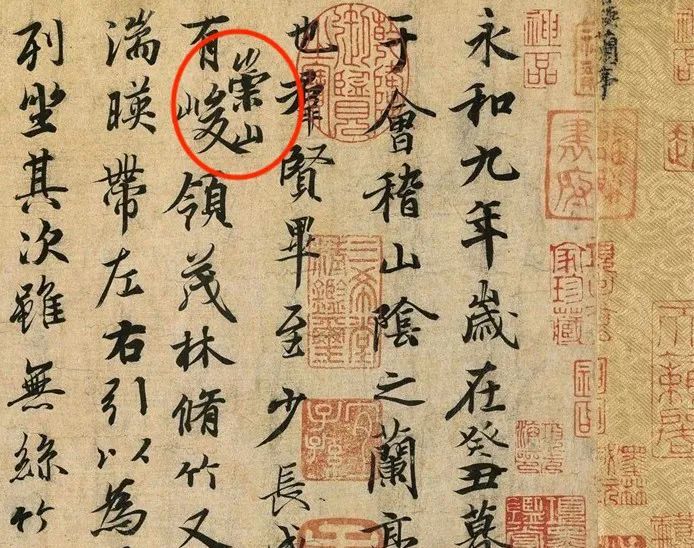 神品
永和九年歲在癸丑暮
于會稽山陰之蘭亭
三希堂精鑑璽
宜子孫
也羣賢畢至少長咸
有崇山峻領茂林脩竹又
湍暎帶左右引以為
列坐其次雖無絲竹